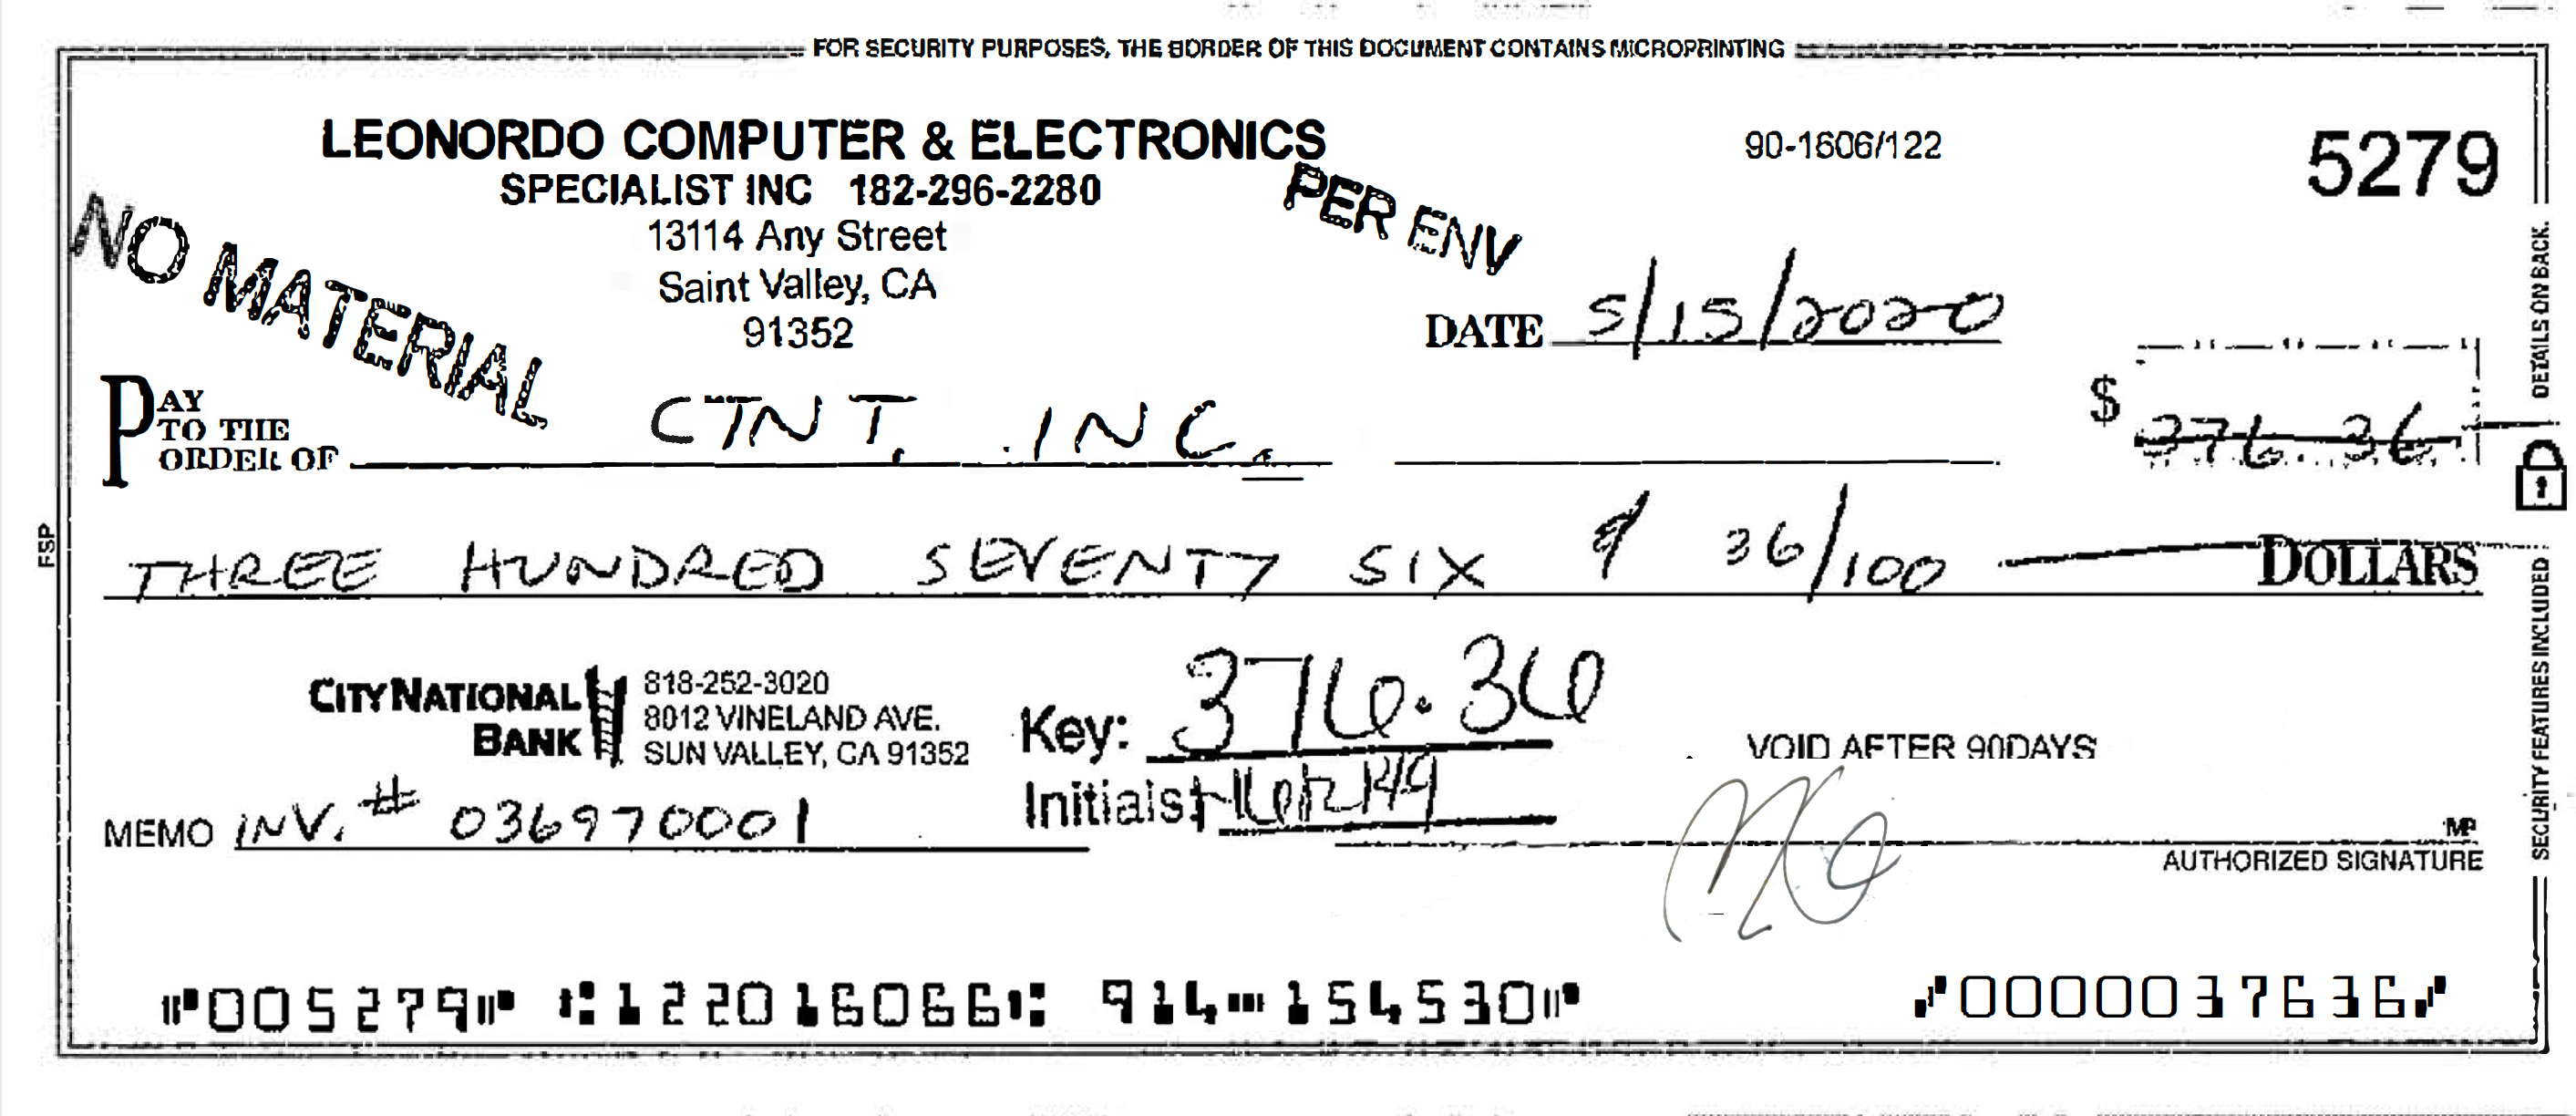 FOR SECURITY PURPOSES, THE BORDER OF THIS DOCUMENT CONTAINS MICROPRINTING
LEONORDO COMPUTER & ELECTRONICS
SPECIALIST INC 182-296-2280
13114 Any Street
Saint Valley, CA
91352
90-1606/122
5279
NO MATERIAL
PER ENV
DATE 5/15/2020
PAY TO THE ORDER OF CTNT, INC.
$ 376.36
THREE HUNDRED SEVENTY SIX & 36/100 DOLLARS
CITY NATIONAL BANK
818-252-3020
8012 VINELAND AVE.
SUN VALLEY, CA 91352
Key: 376.36
Initials:
VOID AFTER 90 DAYS
MEMO INV. # 036970001
MP
AUTHORIZED SIGNATURE
FSP
DETAILS ON BACK.
SECURITY FEATURES INCLUDED
⑈005279⑈ ⑆122016066⑆ 914⑉154530⑈ ⑇0000037636⑇